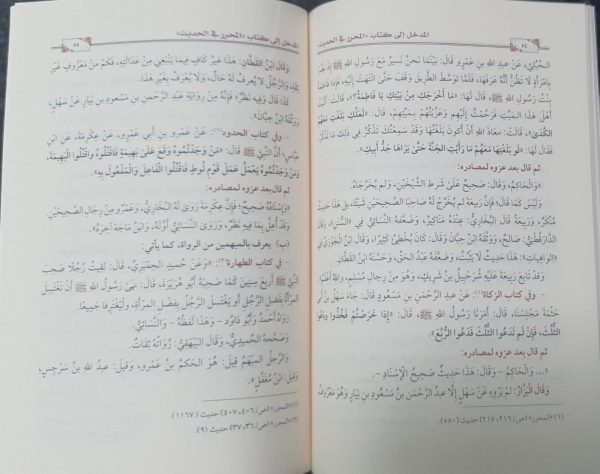 المدخل إلى كتاب «المحرر في الحديث»
٥٤
الحُبُلِّي، عن عبد الله بن عمرو قال: بينما نحنُ نسيرُ مع رسول الله ﷺ إذ بَصُرَ
بامرأةٍ لا نظنُّ أنه عرفها، فلمَّا توسَّط الطريق وقف حتى انتهت إليه، فإذا فاطمة
بنت رسول الله ﷺ، قال لها: «ما أخرجكِ من بيتكِ يا فاطمة؟»، قالت: أتيتُ
أهل هذا الميت فرحمتُ إليهم وعزَّيتهم بميتهم، قال: «لعلكِ بلغتِ معهم
الكُدَى»، قالت: معاذ الله أنْ أكون بلغتها وقد سمعتك تذكُر في ذلك ما تذكر،
فقال لها: «لو بلغتِها معهُم ما رأيتِ الجنَّة حتَّى يراها جدُّ أبيكِ».
ثم قال بعد عزوه لمصادره:
«والحاكم، وقال: صحيحٌ على شرط الشَّيخين، ولم يخرجاه.
وليس كما قال؛ فإنَّ ربيعة لم يُخرِّج له صاحبا الصحيحين شيئًا، بل هو
مُنكَر، وربيعةُ قال البُخاري: عندهُ مناكير، وضعَّفه النَّسائيُّ في «السنن»، وقال
الدَّارقطني: صالح، ووثَّقه ابن حبَّان وقال: كان يُخطئ كثيرًا، وقال ابن الجوزي في
«الواهيات»: هذا حديثٌ لا يثبت، وضعَّفه عبد الحق، وحسَّنه ابن القطان.
وقد تابع ربيعة عليه شُرَحْبيل بن شريك، وهو من رجال مُسلم، والله أعلم».
- وفي كتاب الزكاة(١): عن عبد الرَّحمن بن مسعودٍ قال: جاء سهل بن أبي
حَثْمة مجلسنا، قال: أمرنا رسول الله ﷺ قال: «إذا خرصتُم فخُذوا ودعوا
الثُّلث، فإن لم تدعوا الثُّلث فدعوا الرُّبع».
ثم قال بعد عزوه لمصادره:
«... والحاكم - وقال: هذا حديثٌ صحيح الإسناد -.
وقال البزَّار: لم يروه عن سهلٍ إلَّا عبد الرَّحمن بن مسعود بن نيار وهو معروف.
(١) «المحرر» (ص/٢١٦، ٢١٧) حديث (٥٨٠).
المدخل إلى كتاب «المحرر في الحديث»
٥٥
وقال ابنُ القطَّان: هذا غير كافٍ فيما ينبغي من عدالته، فكم من معروفٍ غير
ثقةٍ، والرَّجُل لا يُعرف له حال، ولا يُعرف بغير هذا.
كذا قال وفيه نظرٌ؛ فإنَّه من رواية عبد الرَّحمن بن مسعود بن نيار عن سهلٍ،
ووثَّقه ابن حبَّان».
- وفي كتاب الحدود(١): عن عمرو بن أبي عمرو، عن عكرمة، عن ابن
عباس؛ أنَّ النبيَّ ﷺ قال: «من وجدتُموهُ وقع على بهيمةٍ فاقتلوه واقتلوا البهيمة،
ومن وجدتموهُ يعملُ عمل قوم لوطٍ فاقتلوا الفاعل والمفعول به».
ثم قال بعد عزوه لمصادره:
«وإسناده صحيحٌ؛ فإن عكرمة روى له البُخاري، وعمرو من رجال الصحيحين.
وقد أُعلَّ بما فيه نظرٌ، وروى النَّسائي أوَّله، وابنُ ماجة آخره».
(ب) يعرف بالمبهمين من الرواة، كما يأتي:
- في كتاب الطهارة(٢): «وعن حُميد الحِميَري، قال: لقيتُ رجُلًا صحب
النبي ﷺ أربع سنين كما صحبه أبو هريرة، قال: نهى رسول الله ﷺ أن تغتسل
المرأة بفضل الرَّجُل أو يغتسل الرَّجُل بفضل المرأة، وليغترفا جميعًا.
رواه أحمد وأبو داود - وهذا لفظه - والنسائي.
وصححه الحُميدي، وقال البيهقي: رواته ثقات.
والرَّجُل المبهم قيل: هو الحكم بن عمرو، وقيل: عبد الله بن سرجس،
وقيل: ابنُ مغفَّلٍ».
(١) «المحرر» (ص/٤٠٦، ٤٠٧) حديث (١١٦٧).
(٢) «المحرر» (ص/٣٦، ٣٧) حديث (٩).